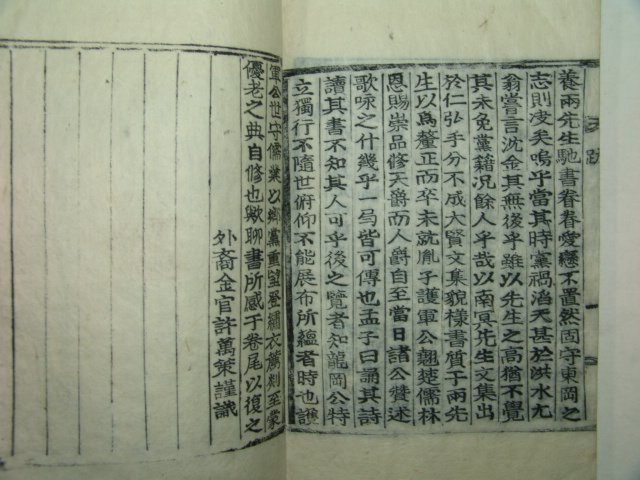 養兩先生馳書眷眷愛戀不置然固守東岡之
志則凌矣嗚乎當其時黨禍滔天甚於洪水尤
翁嘗言沈金其無後乎雖以先生之高猶不覺
其未免黨籍况餘人乎哉以南冥先生文集出
於仁弘手分不成大賢文集貌樣書質于兩先
生以爲釐正而卒未就胤子護軍公翹楚儒林
恩賜崇品修天爵而人爵自至當日諸公贊述
歌咏之什幾乎一局皆可傳也孟子曰誦其詩
讀其書不知其人可乎後之覽者知龍岡公特
立獨行不隨世俯仰不能展布所蘊者時也護
軍公世守儒業以鄉黨重望登繡衣薦剡至蒙
優老之典自修也歟聊書所感于卷尾以復之
外裔金官許萬策謹識